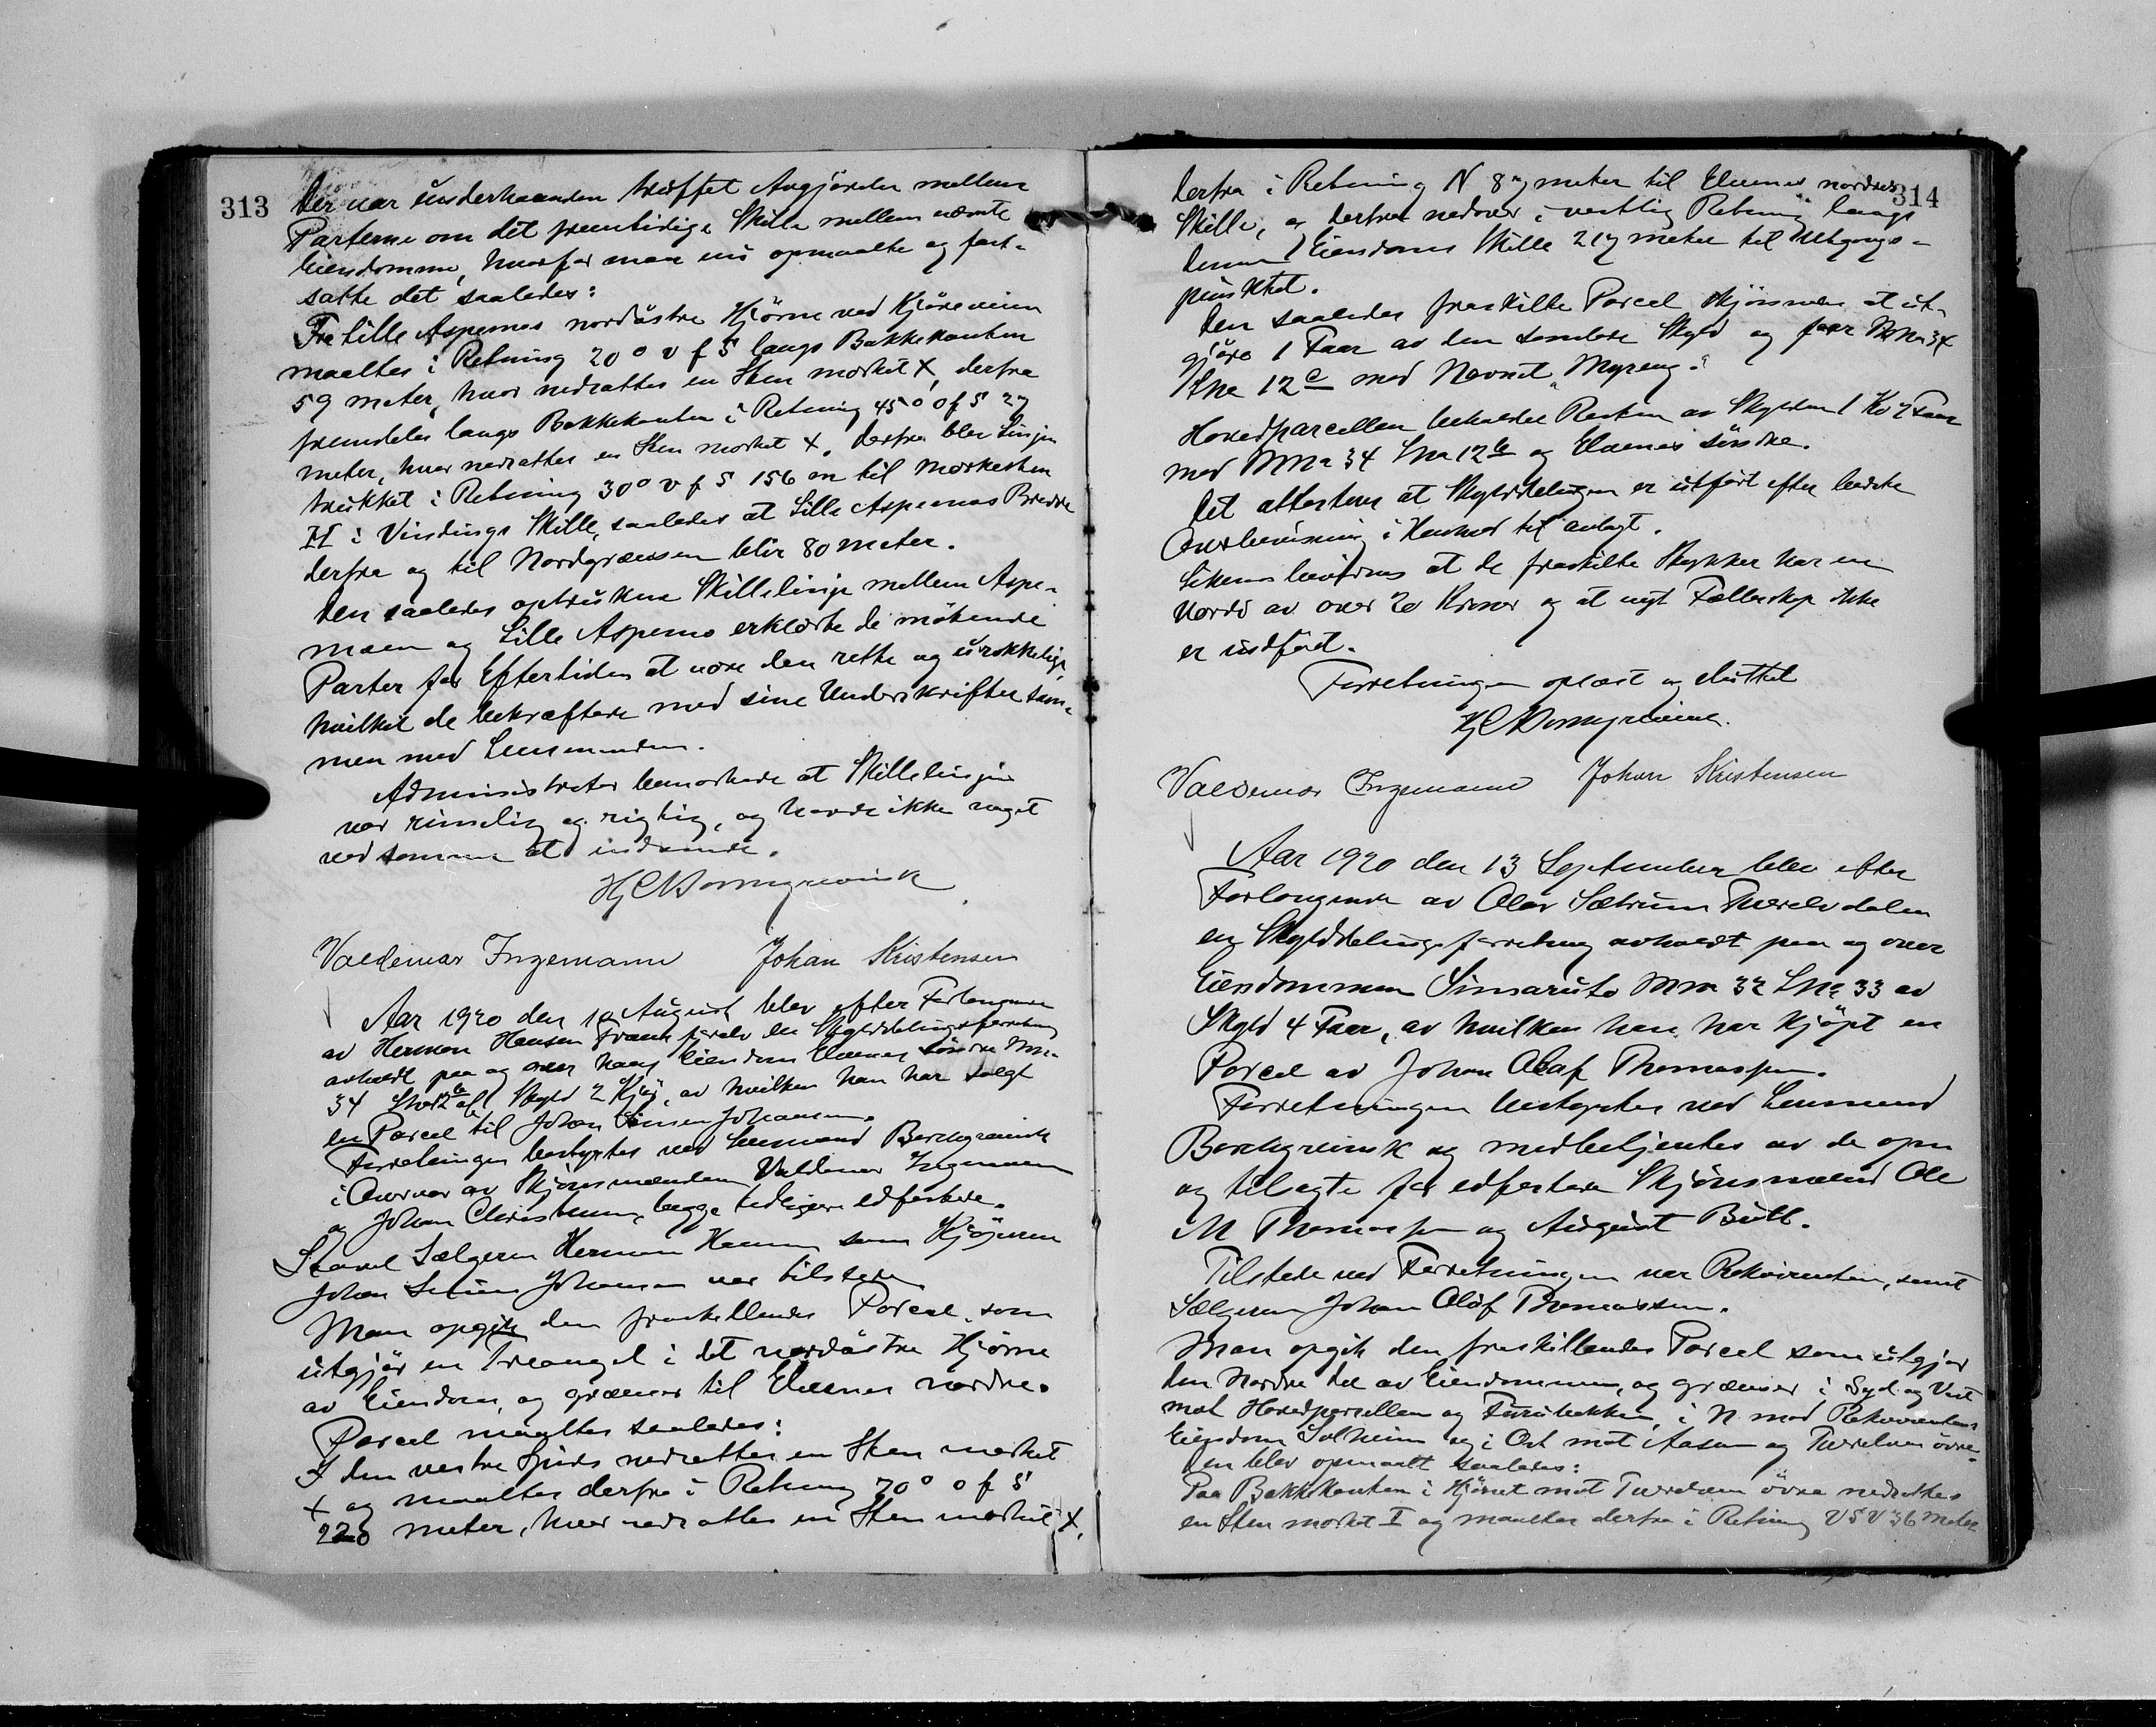 313
Der var underhaanden truffet Avgjörelse mellem
Parterne om det fremtidige Skille mellem nævnte
Eiendomme, hvorfor man nu opmaalte og fast-
satte det saaledes:
Fra Lille Aspenes nordöstre Hjörne ved Kjöreveien
maaltes i Retning 20° v f S langs Bakkekanten
59 meter, hvor nedsattes en Sten mærket X, derfra
fremdeles langs Bakkekanten i Retning 45° O f S 27
meter, hvor nedsattes en Sten mærket X. Derfra blev Linjen
trukket i Retning 30° v f S 156 m til Merkesten
II i Vindings Skille, saaledes at Lille Aspenes Bredde
derfra og til Nordgrænsen blir 80 meter.
Den saaledes optrukne Skillelinje mellem Aspe-
moen og Lille Aspenes erklærte de mötende
Parter for Eftertiden at være den rette og urokkelige
hvilket de bekræftede med sine Underskrifter sam-
men med Lensmanden.
Administrator bemærkede at Skillelinjen
var rimelig og rigtig, og havde ikke noget
ved samme at indvende.
Hj C Borchgrevink
Valdemar Ingemann Johan Kristensen
Aar 1920 den August blev efter Forlangende
av Herman Hansen en Skylddelingsforretning
avholdt paa og over hans Eiendom Elvenes söndre Mno
34 Lno 12 b af Skyld 2 Kjör, av hvilken han har solgt
en Parcel til Johan Simon Johansen.
Forretningen bestyrtes ved Lensmand Borchgrevink
i Overvær av Skjönsmændene Valdemar Ingemann
og Johan Christensen, begge tidligere edfæstede.
Saavel Sælgeren Herman Hansen som Kjöperen
Johan Simon Johansen var tilstede.
Man opgik den fraskillendes Parcel, som
utgjör en Treangel i det nordöstre Hjörne
av Eiendom, og grænser til Elvenes nordre.
Parcel maaltes saaledes:
I den vestre Spids nedsattes en Sten merket
+ og maaltes derfra i Retning 70° o f S
220 meter, hvor nedsattes en Sten merket X.
314
derfra i Retning N 87 meter til Elvenes nordres
Skille, og derfra nedover i vestlig Retning langs
denne Eiendoms Skille 217 meter til Utgangs-
punktet.
Den saaledes fraskilte Parcel skjönnedes at ut-
gjöre 1 Faar av den samlede Skyld og faar Mno 34
Lno 12 c med Navnet "Myreng".
Hovedparcellen beholder Resten av Skylden 1 Ko 7 Faar
med Mno 34 Lno 12 b og Elvenes söndre.
Det attesteres at Skylddelingen er utfört efter bedste
Overbevisning i Henhold til avlagt.
Likesaa bevidnes at de fraskilte Stykker har en
Værdi av over 20 Kroner og at nyt Fælleskap ikke
er indfört.
Forretningen oplæst og sluttet
Hj C Borchgrevink.
Valdemar Ingemann Johan Kristensen
Aar 1920 den 13 September blev efter
Forlangende av Olav Sætrum Tverelvdalen
en Skylddelingsforretning avholdt paa og over
Eiendommen Mno 32 Lno 33 av
Skyld 4 Faar, av hvilken han har kjöpt en
Parcel av Johan Olaf Thomassen.
Forretningen bestyrtes ved Lensmand
Borchgrevink og medbetjentes av de opn
og tilsagte för edfæstede Skjönsmænd Ole
M Thomassen og August Bull.
Tilstede ved Forretningen var Rekvirenten, samt
Sælgeren Johan Olaf Thomassen.
Man opgik den fraskillendes Parcel som utgjör
den Nordre del av Eiendommen, og grænser i Syd og Vest
mot Hovedparcellen og Furubakken, i N mod Rekvirentens
Eiendom Solheim og i Ost mot Aasen og Tverelven övre.
Den blev opmaalt saaledes:
Paa Bakkekanten i Hjörnet mot Tverelven övre nedsattes
en Sten mærket I og maaltes derfra i Retning V S V 36 meter